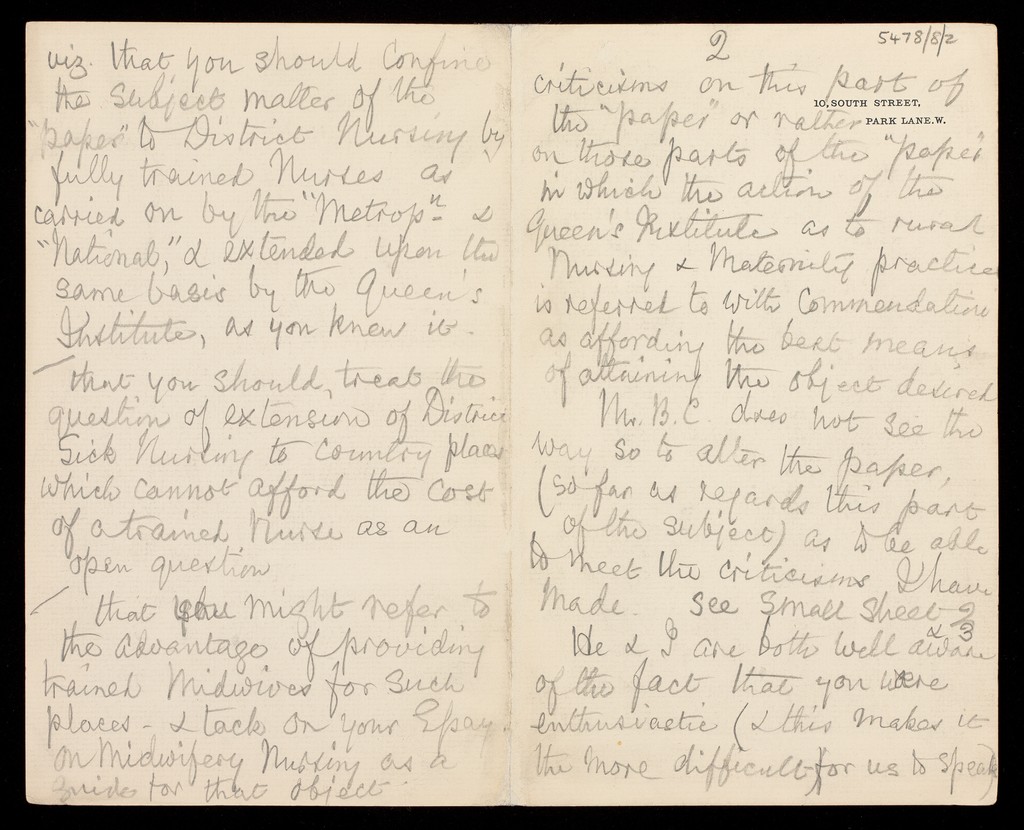 viz. that you should confine
the subject matter of the
"paper" to District Nursing by
fully trained Nurses as
carried on by the "Metropn. &
"National," & extended upon the
same basis by the Queen's
Institute, as you knew it.
that you should, treat the
question of extension of District
Sick Nursing to Country places
which cannot afford the cost
of a trained Nurse as an
open question
that you might refer to
the advantage of providing
trained Midwives for such
places - & tack on your Essay
on Midwifery Nursing as a
guide for that object.
5478/8/2
2
criticisms on this part of
10, SOUTH STREET,
the "paper" or rather
PARK LANE. W.
on those parts of the "paper"
in which the action of the
Queen's Institute as to rural
Nursing & Maternity practice
is referred to with commendation
as affording the best means
of attaining the object desired
Mr. B.C. does not see the
way so to alter the paper,
(so far as regards this part
of the subject) as to be able
to meet the criticisms I have
made. See Small Sheet 2
& 3
He & I are both well aware
of the fact that you were
enthusiastic (& this makes it
the more difficult for us to speak)